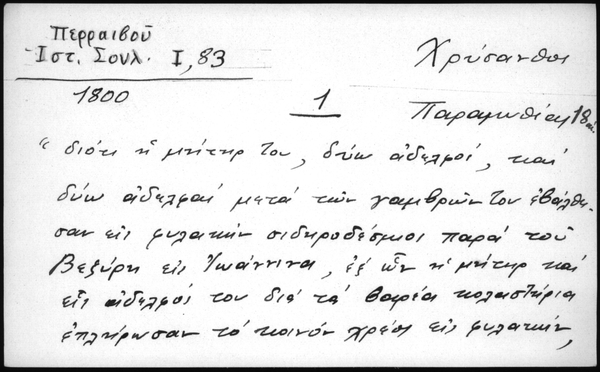 Περραιβοῦ
Ἱστ. Σουλ. I, 83
Χρύσανθος
1800
1
Παραμυθίας 18 αἰ.
"διότι ἡ μήτηρ του, δύω ἀδελφοί, καί
δύω ἀδελφαί μετά τῶν γαμβρῶν του ἐβάλθη-
σαν εἰς φυλακήν σιδηροδέσμιοι παρά τοῦ
Βεζύρη εἰς Ἰωάννινα, ἐξ ὧν ἡ μήτηρ καί
εἷς ἀδελφός του διά τά βαρέα κολαστήρια
ἐπλήρωσαν τό κοινόν χρέος εἰς φυλακήν,